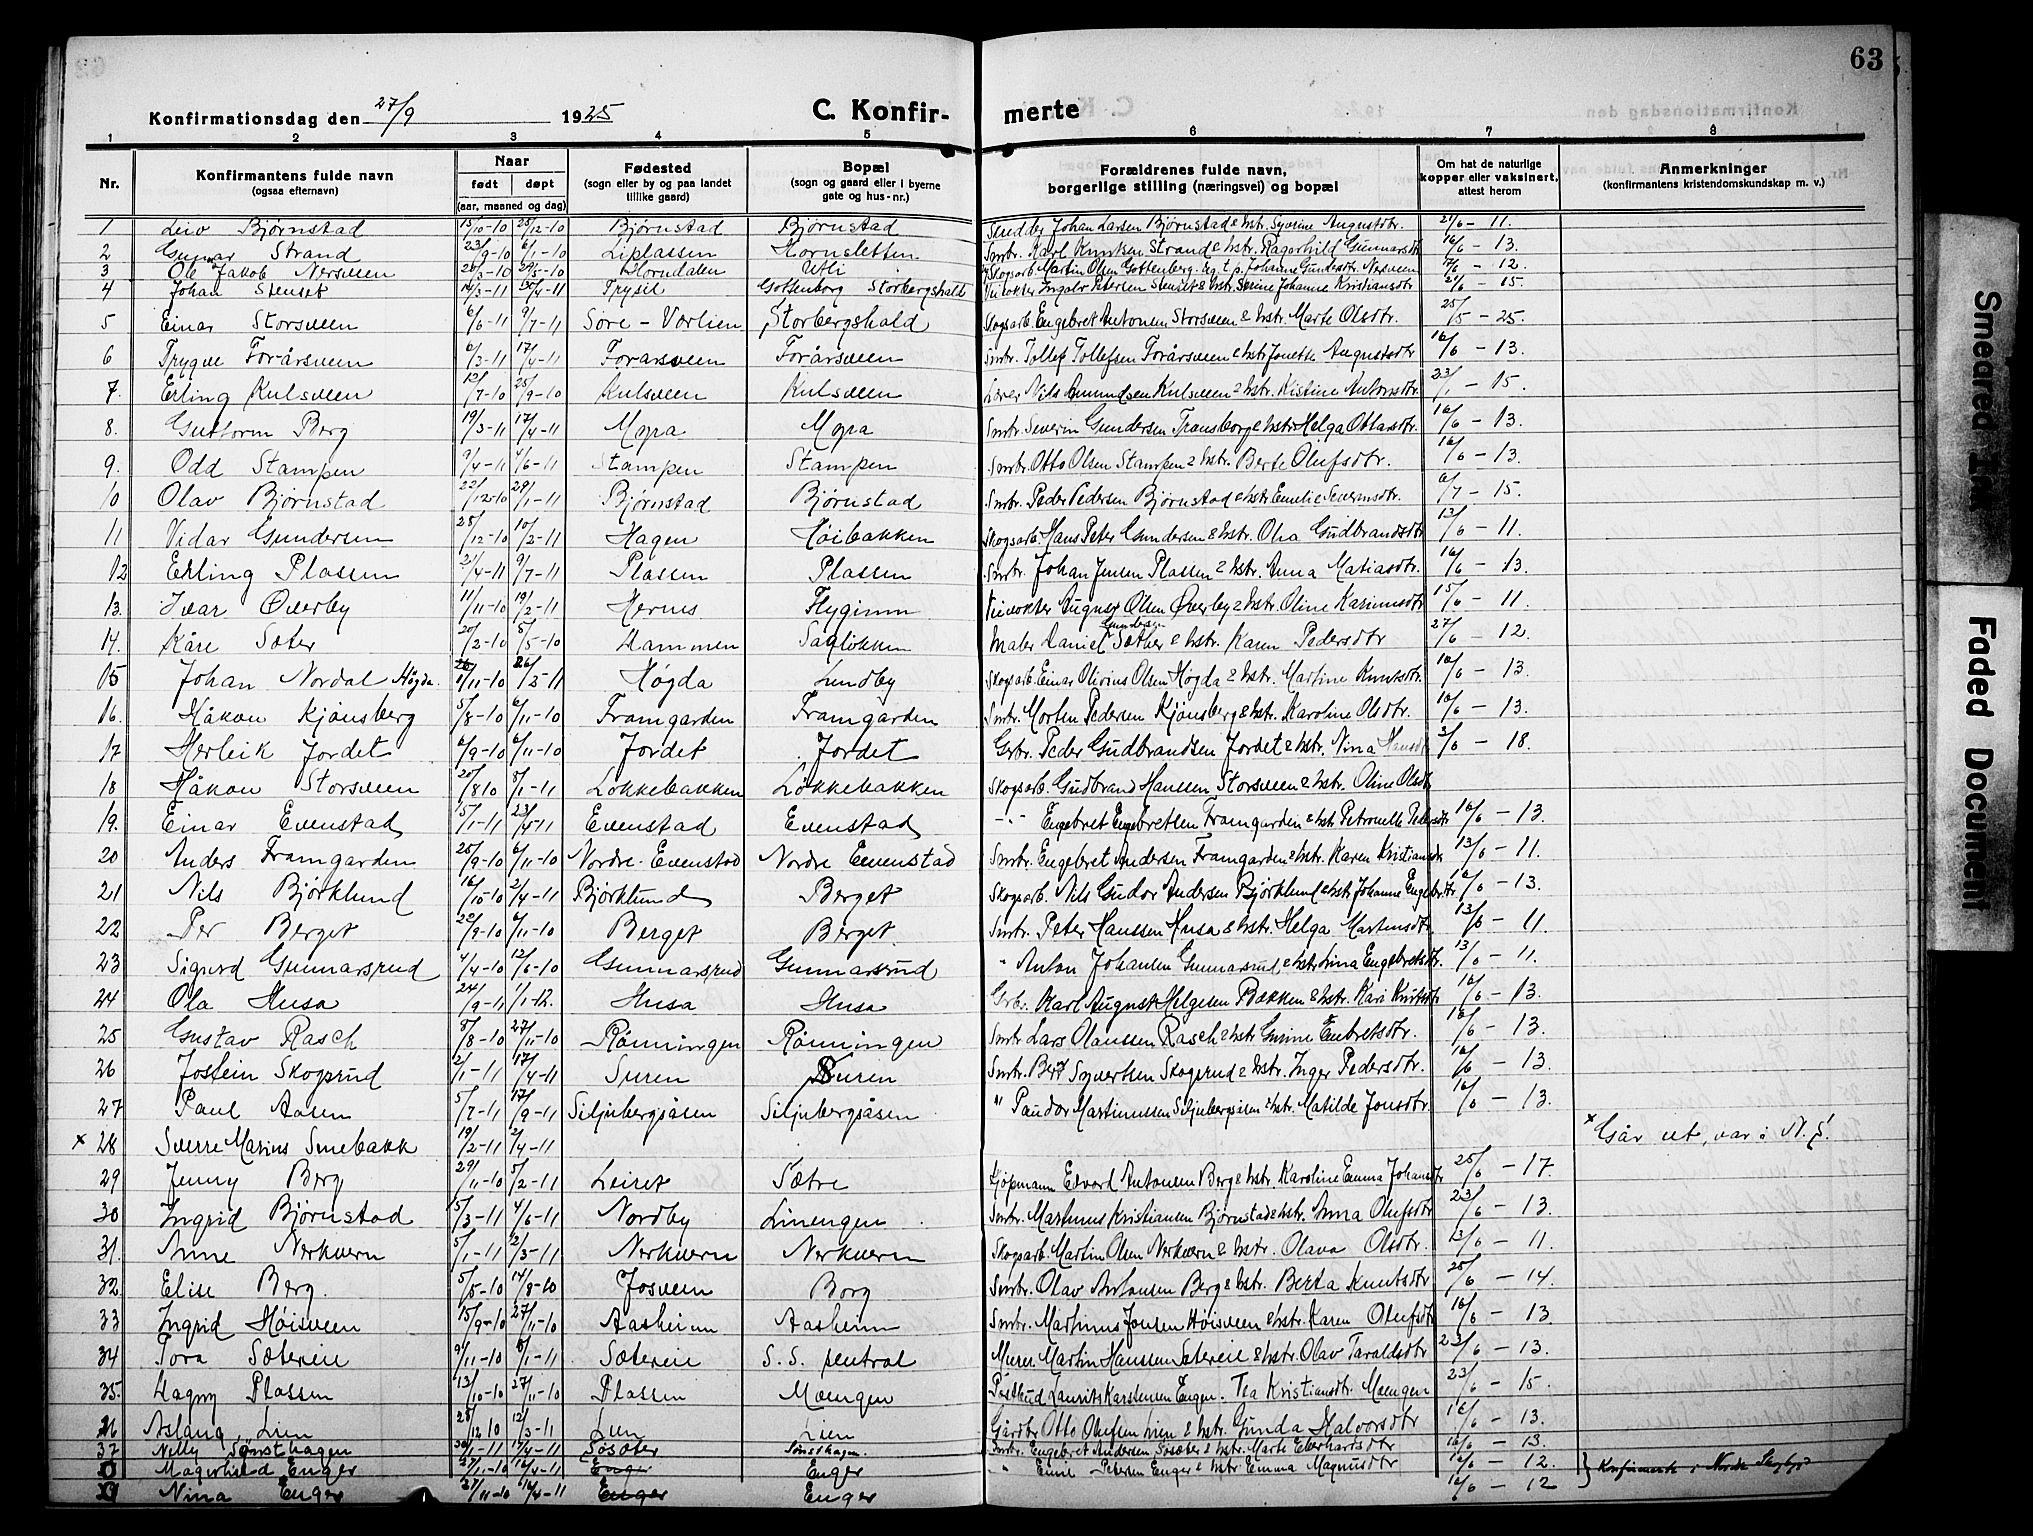 63
Konfirmationsdag den 27/9 1925 C. Konfir- merte
1 2 3 4 5 6 7 8
Nr. Konfirmantens fulde navn (ogsaa efternavn) Naar født døpt (aar, maaned og dag) Fødested (sogn eller by og paa landet tillike gaard) Bopæl (sogn og gaard eller i byerne gate og hus-nr.) Forældrenes fulde navn, borgerlige stilling (næringsvei) og bopæl Om hat de naturlige kopper eller vaksinert, attest herom Anmerkninger (konfirmantens kristendomskundskap m. v.)
1 Leiv Bjørnstad 15/10-10 25/12-10 Bjørnstad Bjørnstad Johan Larsen Bjørnstad & hstr. Syverine Augustdtr. 21/6 - 11.
2 Gunnar Strand 23/9-10 6/1-10 Liplassen Hornsletten Smbr. Karl Knutsen Strand & hstr. Ragnhild Gunnarsdtr 16/6 - 13.
3 Ole Jakob Nersveen Horndalen Utli Skogsarb. Martin Olsen Gottenberg. Johanne Gundersdtr. Nersveen 17/6 - 12.
4 Johan Stenset 14/3-11 30/4-11 Trysil Gottenborg Storbergshald Ingalv Petersen Stenset & hstr. Serine Johanne Kristiansdtr 21/6 - 15.
5 Einar Storsveen 6/6-11 9/7-11 Søre-Værlien Storbergshald Skogsarb. Engebret Antonsen Storsveen & hstr. Marte Olsdtr. 25/5 - 25.
6 Trygve Forårsveen 6/3-11 17/4-11 Forarsveen Forårsveen Smbr. Tollef Tollefsen Forårsveen & hstr Jonette Augustsdtr 16/6 - 13.
7. Erling Kulsveen 12/7-10 25/9-10 Kulsveen Kulsveen Lærer Nils Amundsen Kulsveen & hstr. Kistine Antonsdtr. 23/1 - 15.
8. Guttorm Berg 19/3-11 17/4-11 Myra Myra Smbr. Severin Gundersen Transborg & hstr Helga Ottarsdtr. 16/6 - 13.
9. Odd Stampen 9/4-11 4/6-11 Stampen Stampen Smbr. Otto Olsen Stampen & hstr. Berte Olufsdtr. 16/6 - 13.
10 Olav Bjørnstad 22/12-10 29/1-11 Bjørnstad Bjørnstad Smbr. Peder Pedersen Bjørnstad & hstr Emelie Severinsdtr. 6/7 - 15.
11 Vidar Gundersen 28/12-10 10/2-11 Hagen Høibakken Skogsarb. Hans Peter Gundersen & hstr. Olea Gudbrandsdtr 13/6 - 11.
12 Erling Plassen 21/4-11 9/7-11 Plassen Plassen Smbr. Johan Jensen Plassen & hstr. Anna Matiasdtr. 16/6 - 13.
13. Ivar Overby 11/11-10 19/2-11 Hernes Flyginn August Olsen Øverby & hstr. Oline Karinusdtr 15/6 - 11.
14. Kåre Sæter 20/2-10 5/5-10 Hammen Sagløkken Maler Daniel Gundersen Sæther & hstr. Karen Pedersdtr 27/6 - 12.
15 Johan Nordal Høgda. 26/2-11 Høgda Lundby Skogsarb. Einar Olivius Olsen Høgda & hstr. Martine Knutsdtr. 16/6 - 13.
16. Håkon Kjønsberg 5/8-10 6/11-10 Framgarden Framgarden Smbr. Morten Pedersen Kjønsberg & hstr. Karoline Olsdtr. 16/6 - 13.
17 Herleik Jordet 6/9-10 6/11-10 Jordet Jordet Gbr. Peder Gudbrandsen Jordet & hstr. Nina Hansdtr 2/6 - 18.
18 Håkon Storsveen 20/8 10 8/1-11 Løkkebakken Løkkebakken Skogsarb. Gudbrand Hanssen Storsveen & hstr. Oline Olsdtr
19. Einar Evenstad 15/1-11 23/4-11 Evenstad Evenstad -"- Engebret Engebretsen Framgarden & hstr Petronelle Pedersdtr 16/6 - 13.
20 Anders Framgarden 25/9-10 6/11-10 Nordre-Evenstad Nordre Evenstad Smbr. Engebret Andersen Framgarden & hstr. Karen Kristiansdtr 13/6 - 11.
21 Nils Bjørklund 16/10-10 2/4-11 Bjørklund Berget Skogsarb. Nils Gudor Andersen Bjørklund & hstr Johanne Engebrdtr 16/6 - 13.
22 Per Berget 22/9-10 6/11-10 Berget Berget. Smbr. Peter Hanssen Husa & hstr. Helga Martinsdtr. 13/6 - 11.
23 Sigurd Gunnarsrud 4/4-10 12/6-10 Gunnarsrud Gunnarsrud " Anton Johansen Gunnarsrud & hstr Anna Engebretsdtr. 13/6 - 11.
24 Ola Husa 24/9-11 1/1-12. Husa Husa Gbr. Karl August Helgesen Bakken & hstr. Kari Knutsdtr 16/6 - 13.
25 Gustav Rasch 8/8-10 27/11-10 Rønningen Rønningen Smbr Lars Olaussen Rasch & hstr Gurine Enbretsdtr. 16/6 - 13.
26 Jostein Skogsrud 2/1-11 17/4-11 Suren Suren Smbr. Bert Syvertsen Skogsrud & hstr. Inger Pedersdtr. 16/6 - 13.
27 Paul Aasen 5/7-11 17/9-11 Siljubergsåsen Siljubergsåsen " Paudor Martinussen Siljubergsåsen & hstr. Matilde Jonsdtr. 16/6 - 13.
x 28 Sverre Marius Smebakk 19/2-11 2/4-11 x Går ut, var i N. S.
29 Jenny Berg 29/11-10 5/2-11 Leiret Sætre Kjøpmann Edvard Antonsen Berg & hstr. Karoline Emma Johansdtr 25/6 - 17.
30 Ingrid Bjørnstad 5/3-11 4/6-11 Nordby Linengen Smbr. Martinus Kristiansen Bjørnstad & hstr. Anna Olufsdtr 23/6 - 13.
31. Anne Nerkvern 5/1-11 2/3-11 Nerkvern Nerkvern Skogsarb. Martin Olsen Nerkvern & hstr. Olava Olsdtr. 13/6 - 11.
32. Elise Berg. 5/5-10 14/8-10 Josveen Borg Smbr. Olav Antonsen Berg & hstr. Berta Knutsdtr 25/6 - 14.
33 Ingrid Høisveen 15/9-10 27/11-10 Aasheim Aasheim Smbr. Martinus Jonsen Høisveen & hstr. Karen Olufsdtr 16/6 - 13
34 Tora Sætereie 9/11-10 8/1-11 Sætereie S. S. sentral Murer. Martin Hanssen Sætereie & hstr. Olav Taraldsdtr 23/6 - 13.
35. Dagny Plassen 13/10-10 27/11-10 Plassen Moengen Postbud Laurits Karstensen Engen. Tea Kristiansdtr. Moengen 23/6 - 15.
36 Aslaug Lien 28/12 10 12/3-11 Lien Lien Gårdbr Otto Olufsen Lien & hstr. Gunda Halvorsdtr 16/6 - 13.
37 Nelly Sønsthagen 30/1-11 17/4-11 Søsæter Sønsthagen Smbr. Engebret Andersen Søsæter & hstr. Marte Eberhardsdtr 16/6 - 13.
Magnhild Enger 27/11-10 16/4-11 Enger Enger " Petersen Enger & hstr Emma Magnusdtr 16/6 - 12. } Konfirmerte i Nordre
Nina Enger 27/11-10 16/4-11 Enger Enger 16/6 - 12
Smeared Ink
Faded Document